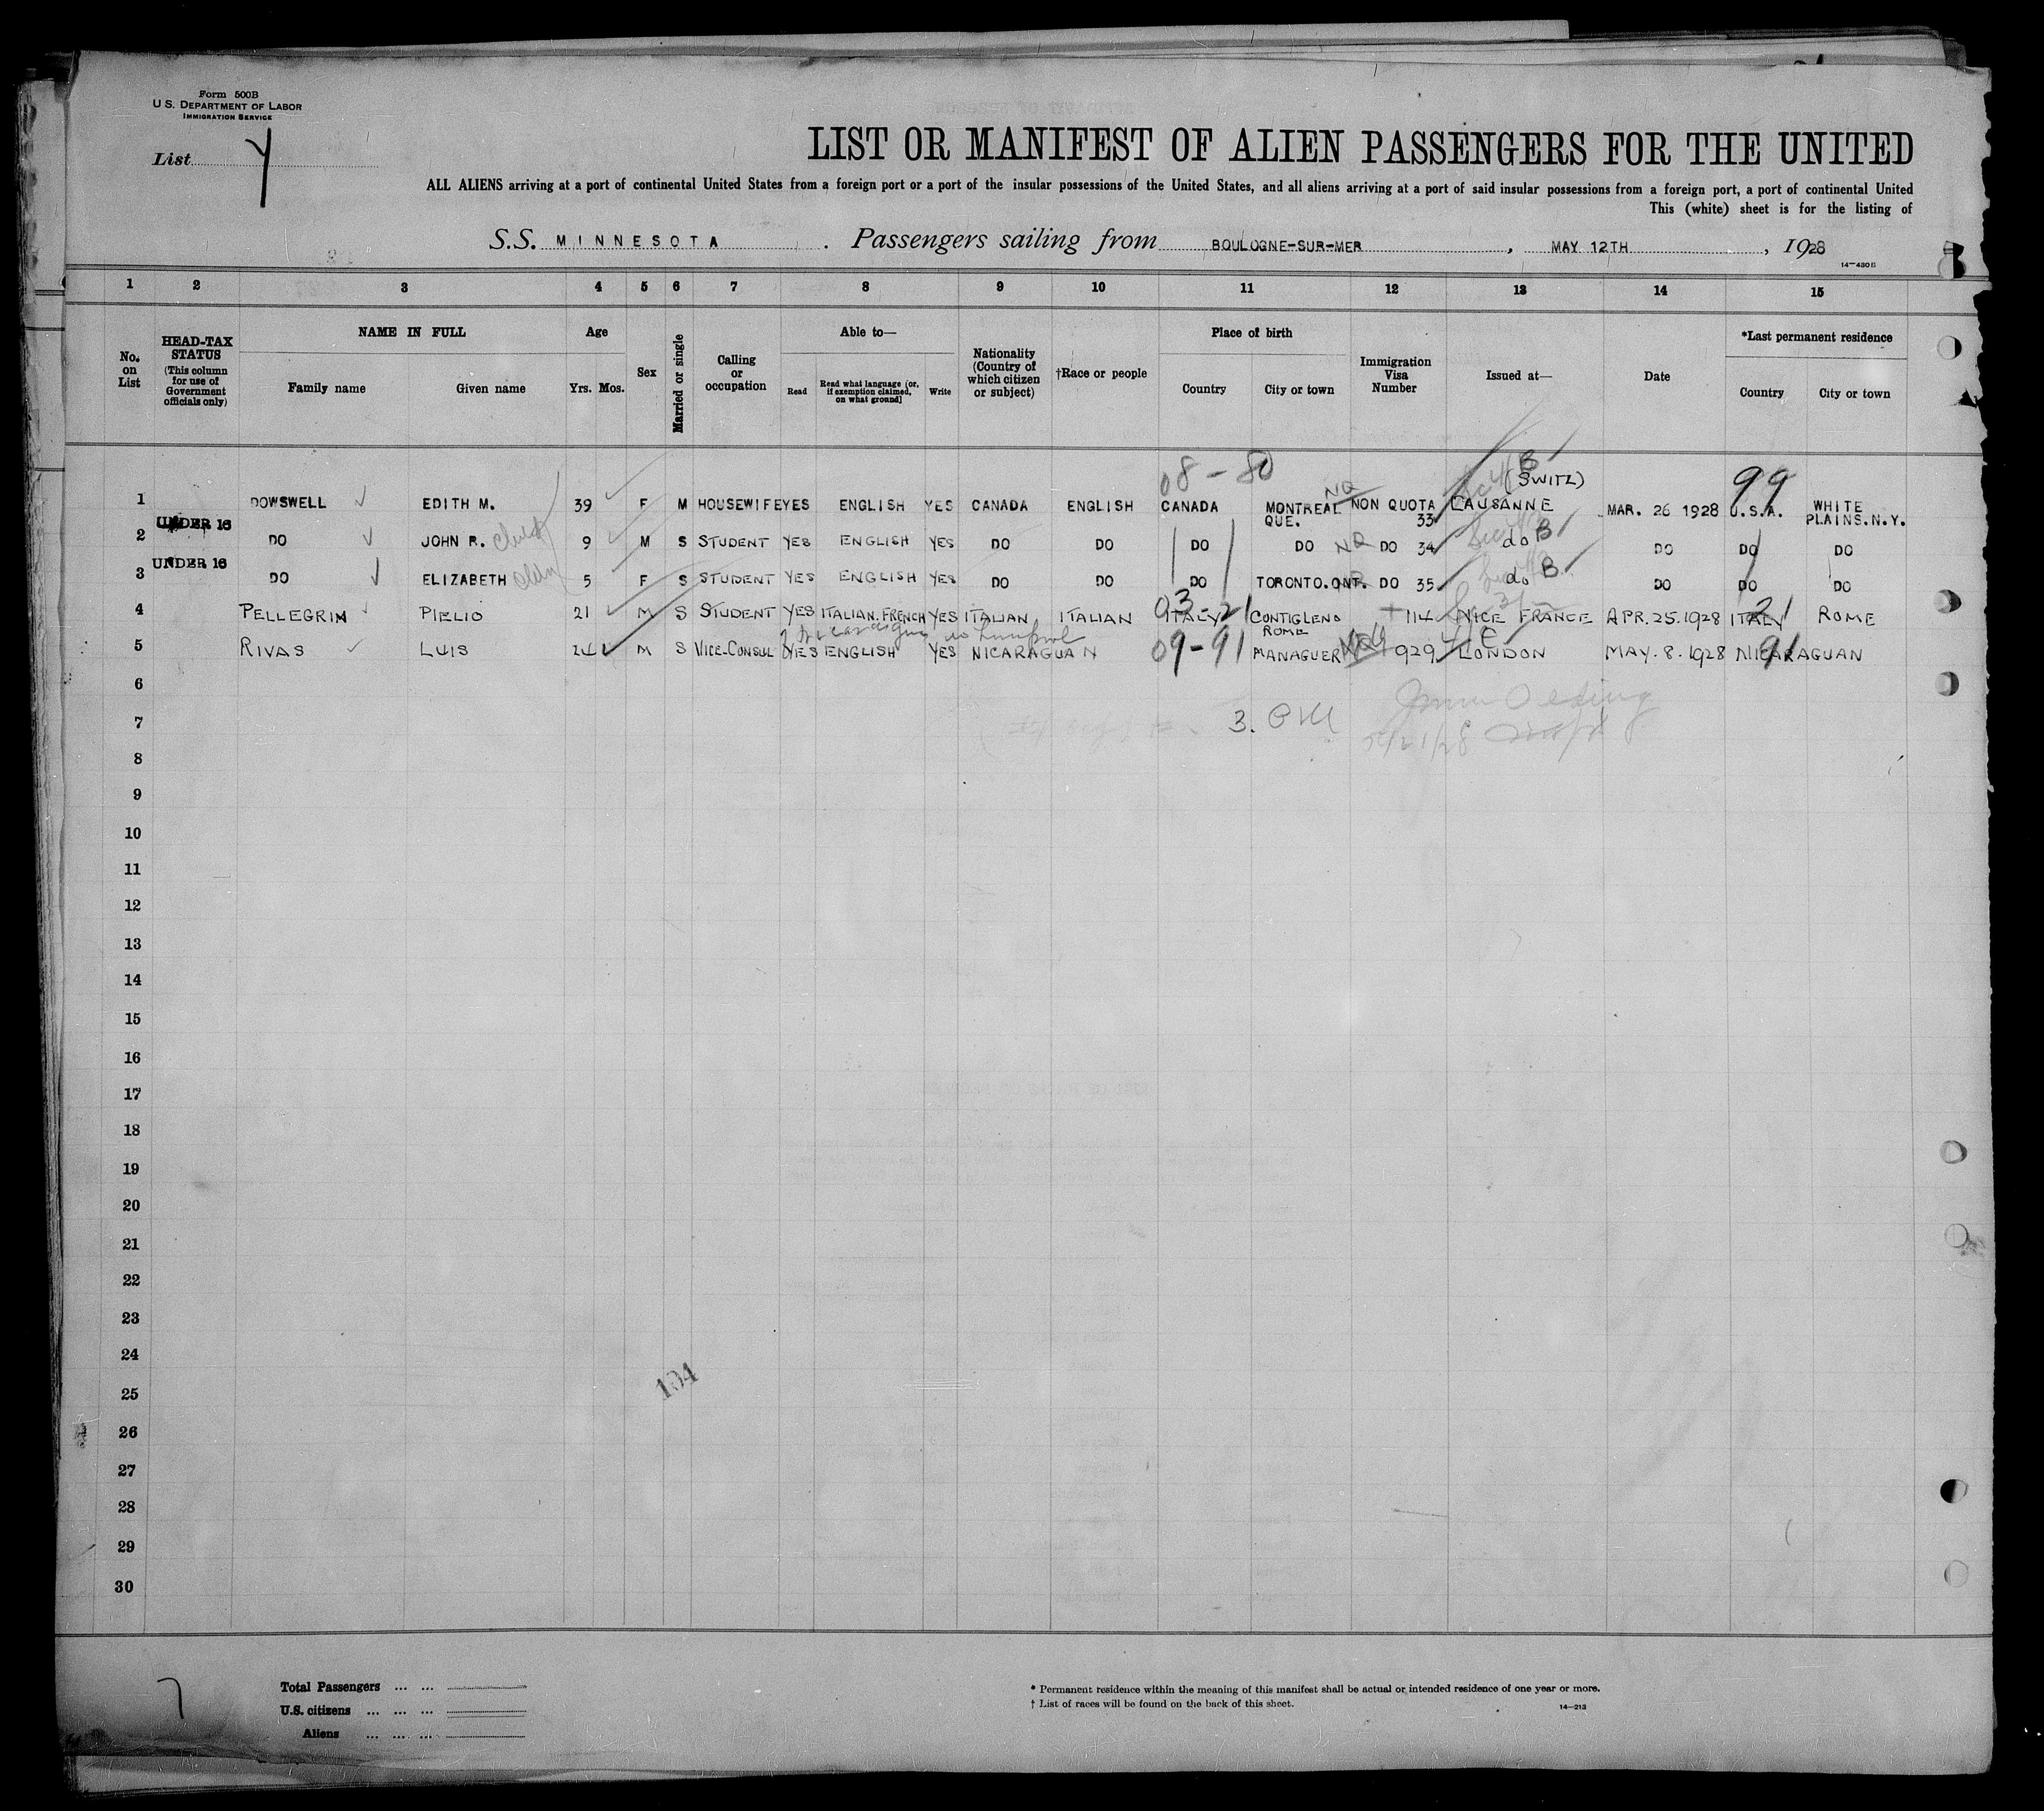 Form 500B
U.S. DEPARTMENT OF LABOR
IMMIGRATION SERVICE
List
LIST OR MANIFEST OF ALIEN PASSENGERS FOR THE UNITED
ALL ALIENS arriving at a port of continental United States from a foreign port or a port of the insular possessions of the United States, and all aliens arriving at a port of said insular possessions from a foreign port, a port of continental United
This (white) sheet is for the listing of
S.S. MINNESOTA . Passengers sailing from BOULOGNE-SUR-MER , MAY 12TH , 1928
14-430B
1 2 3 4 5 6 7 8 9 10 11 12 13 14 15
No. on List
HEAD-TAX STATUS (This column for use of Government officials only)
NAME IN FULL
Family name Given name
Age
Yrs. Mos.
Sex
Married or single
Calling or occupation
Able to—
Read Read what language [or, if exemption claimed, on what ground] Write
Nationality (Country of which citizen or subject)
†Race or people
Place of birth
Country City or town
Immigration Visa Number
Issued at—
Date
*Last permanent residence
Country City or town
08-80 B (SWITZ) 99
1 DOWSWELL EDITH M. 39 F M HOUSEWIFE YES ENGLISH YES CANADA ENGLISH CANADA MONTREAL QUE. NQ NON QUOTA 33 LAUSANNE MAR. 26 1928 U.S.A. WHITE PLAINS. N.Y.
2 UNDER 16 DO JOHN R. child 9 M S STUDENT YES ENGLISH YES DO DO DO DO NQ DO 34 do B DO DO DO
3 UNDER 16 DO ELIZABETH 5 F S STUDENT YES ENGLISH YES DO DO DO TORONTO. ONT. DO 35 do B DO DO DO
4 PELLEGRIN PIELIO 21 M S STUDENT YES ITALIAN. FRENCH YES ITALIAN ITALIAN 03-21 ITALY CONTIGLENO ROME 114 NICE FRANCE APR. 25. 1928 ITALY 21 ROME
5 RIVAS LUIS 24 M S VICE-CONSUL YES ENGLISH YES NICARAGUAN 09-91 MANAGUER 929 LONDON MAY. 8. 1928 NICARAGUAN 91
6
7 3.
8
9
10
11
12
13
14
15
16
17
18
19
20
21
22
23
24
104
25
26
27
28
29
30
7
Total Passengers ... ...
U.S. citizens ... ... ...
Aliens ... ... ...
* Permanent residence within the meaning of this manifest shall be actual or intended residence of one year or more.
† List of races will be found on the back of this sheet.
14-213